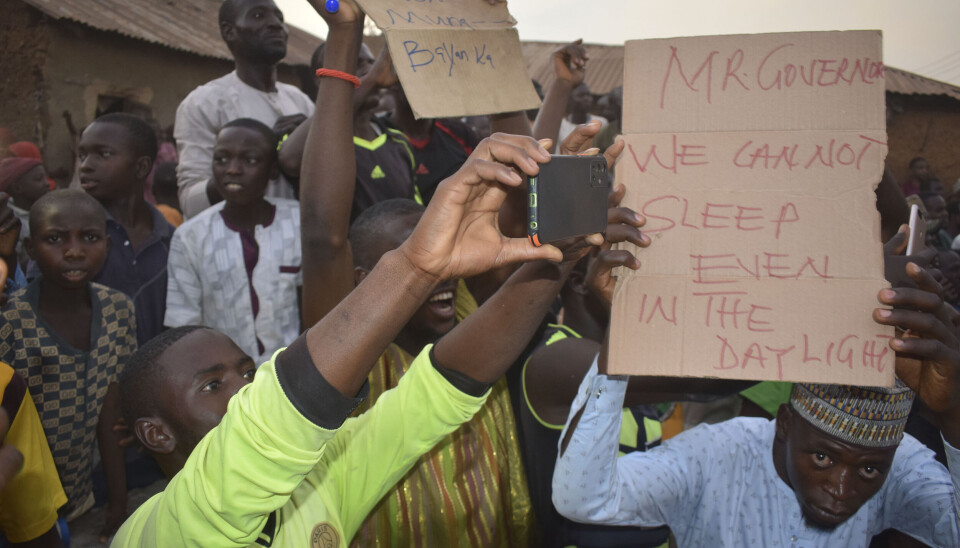 MURA
Bayan Ka
MR. GOVERNOR
WE CAN NOT
SLEEP
EVEN
IN THE
DAYLIGHT